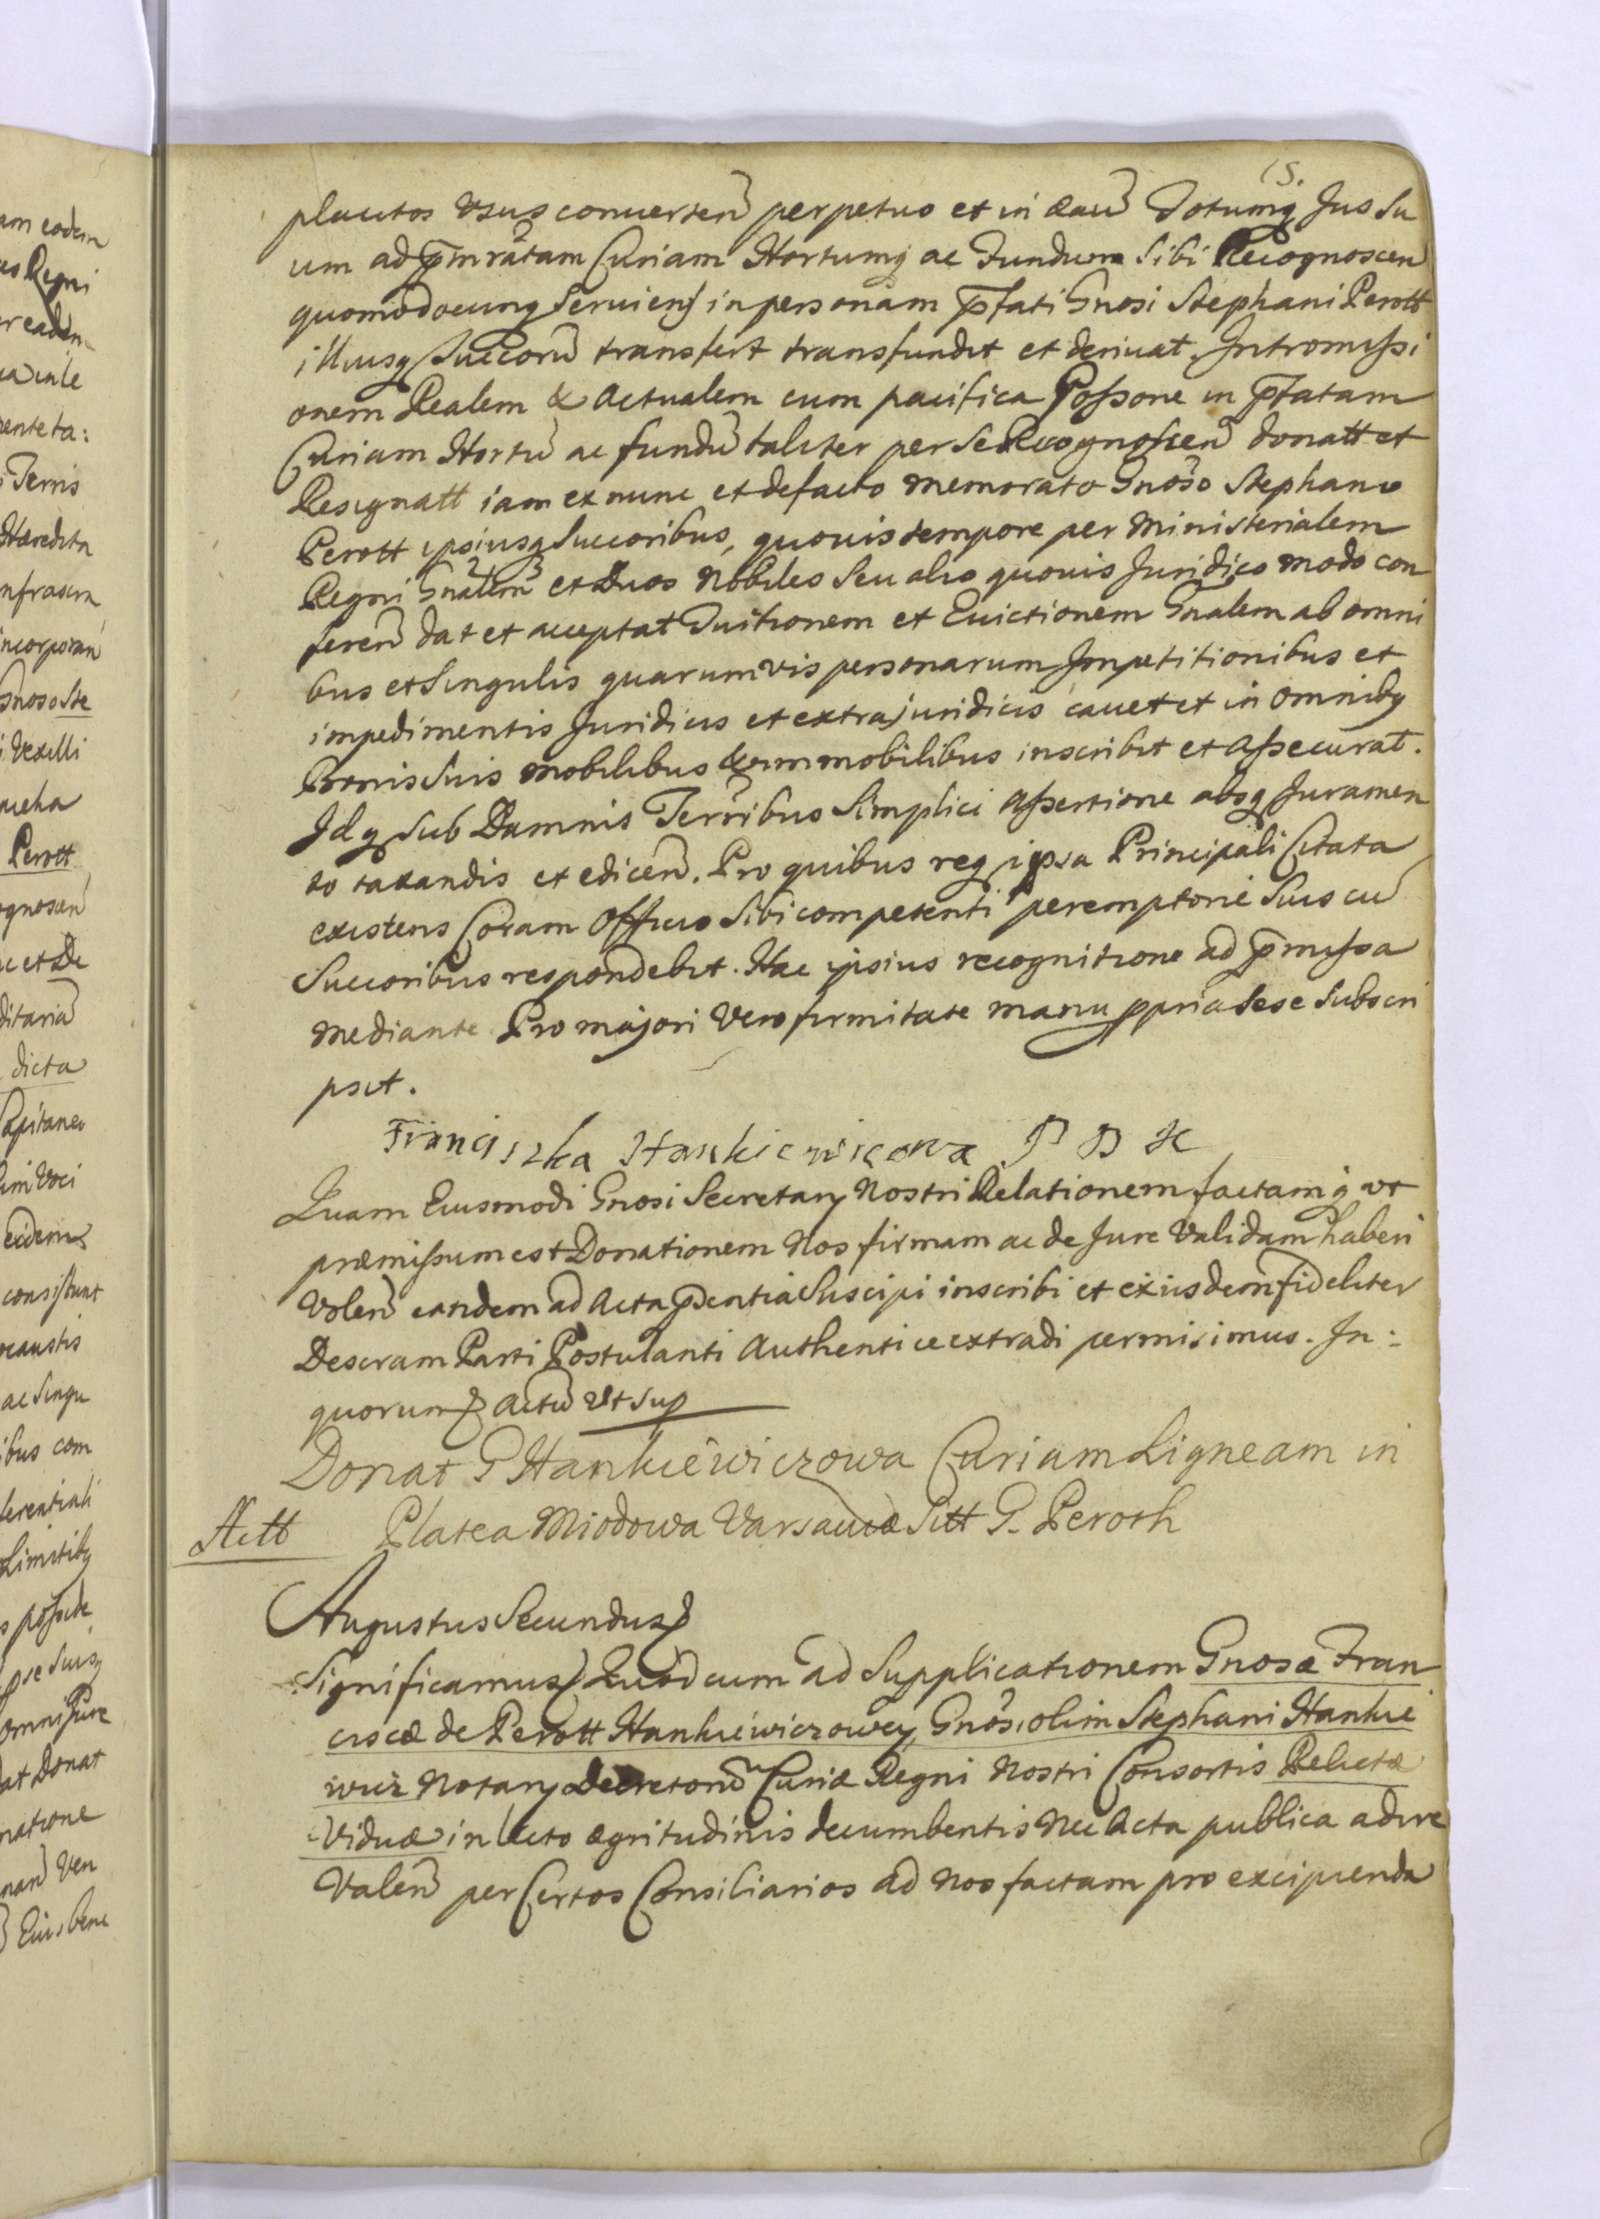 15.
placitos usus converten perpetuo et in aevu Totumq Jus Su
um ad pmratam Curiam Hortumq ac Fundum sibi Recognoscen
quomodocunq serviens in personam pfati Gnosi Stephani Perott
illiusq Succoru transfert transfundit et derivat. Intromissi
onem Realem & Actualem cum pacifica Possone in pfatam
Curiam Hortu ac fundu taliter per se Recognoscen donatt et
Resignatt iam ex nunc et de facto memorato Gnoso Stephano
Perott ipsiusq Succoribus, quovis tempore per Ministerialem
Regni Gnalem et Duos Nobiles Seu alio quovis Juridico modo con
feren dat et acceptat Tuitionem et Evictionem Gnalem ab omni
bus et Singulis quarumvis personarum Impetitionibus et
impedimentis Juridicis et extrajuridicis cavet et in omnibq
Bonis Suis mobilibus & immobilibus inscribit et assecurat.
Idq sub Damnis Terribus Simplici assertione absq Juramen
to taxandis et edicen. Pro quibus req ipsa Principali Citata
existens Coram Officio Sibi competenti peremptorie Suis cu
Succoribus respondebit. Hac ipsius recognitione ad pmissa
mediante. Pro majori Vero firmitate manu ppria sese subscri
psit.
Franciszka Hankiewiczowa P D K
Quam Eiusmodi Gnosi Secretary Nostri Relationem factamq ut
præmissum est Donationem Nos firmam ac de Jure Validam haberi
Volen eandem ad Acta pdentia Suscipi inscribi et eiusdem fideliter
Descram Parti Postulanti Authentice extradi permisimus. In:
quorum Actu Ut sup
Donat G Hankiewiczowa Curiam Ligneam in
Platea Miodowa Varsaviæ Sitt G. Peroth
Actt
Augustus Secundus
Significamus Quod cum ad Supplicationem Gnosæ Fran
ciscæ de Perott Hankiewiczowey, Gnosi olim Stephani Hankie
wicz Notary Decretoru Curiæ Regni Nostri Consortis Relictæ
Viduæ in lecto ægritudinis decumbentis Nec Acta publica adire
Valen per Certos Consiliarios ad Nos factam pro excipienda
am eodem
Regni
Terris
Hæredita
infrascra
incorporan
Gnoso Ste
Vexilli
Perott
ognoscen
ac et De
ditaria
dicta
Capitaneo
eidem
consistunt
ac Singu
ibus com
Limitibq
posside
pse Suisq
omni Jure
at Donat
natione
Ven
Eius bene